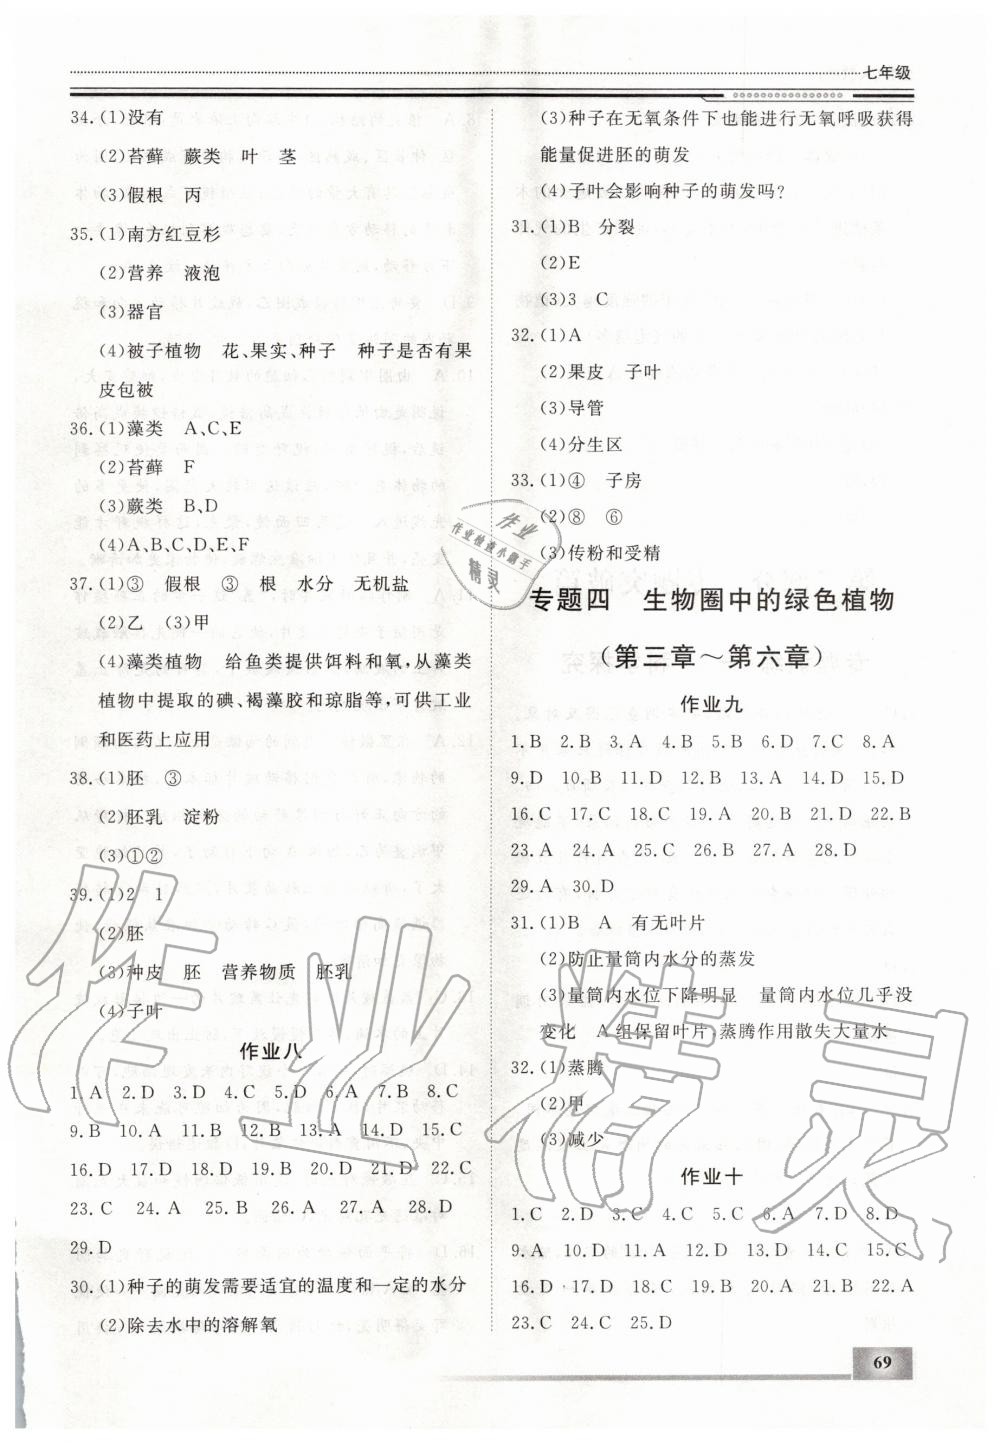 七年级
34.(1)没有
(2)苔藓　蕨类　叶　茎
(3)假根　丙
35.(1)南方红豆杉
(2)营养　液泡
(3)器官
(4)被子植物　花、果实、种子　种子是否有果
皮包被
36.(1)藻类　A、C、E
(2)苔藓　F
(3)蕨类　B、D
(4)A、B、C、D、E、F
37.(1)③　假根　③　根　水分　无机盐
(2)乙　(3)甲
(4)藻类植物　给鱼类提供饵料和氧,从藻类
植物中提取的碘、褐藻胶和琼脂等,可供工业
和医药上应用
38.(1)胚　③
(2)胚乳　淀粉
(3)①②
39.(1)2　1
(2)胚
(3)种皮　胚　营养物质　胚乳
(4)子叶
作业八
1.A　2.D　3.D　4.C　5.D　6.A　7.B　8.C
9.B　10.A　11.B　12.B　13.A　14.D　15.C
16.D　17.D　18.D　19.B　20.D　21.D　22.C
23.C　24.A　25.B　26.A　27.A　28.D
29.D
30.(1)种子的萌发需要适宜的温度和一定的水分
(2)除去水中的溶解氧
(3)种子在无氧条件下也能进行无氧呼吸获得
能量促进胚的萌发
(4)子叶会影响种子的萌发吗?
31.(1)B　分裂
(2)E
(3)3　C
32.(1)A
(2)果皮　子叶
(3)导管
(4)分生区
33.(1)④　子房
(2)⑧　⑥
(3)传粉和受精
专题四　生物圈中的绿色植物
(第三章～第六章)
作业九
1.B　2.B　3.A　4.B　5.B　6.D　7.C　8.A
9.D　10.B　11.D　12.B　13.A　14.D　15.D
16.C　17.C　18.C　19.A　20.B　21.D　22.B
23.A　24.A　25.C　26.B　27.A　28.D
29.A　30.D
31.(1)B　A　有无叶片
(2)防止量筒内水分的蒸发
(3)量筒内水位下降明显　量筒内水位几乎没
变化　A组保留叶片,蒸腾作用散失大量水
32.(1)蒸腾
(2)甲
(3)减少
作业十
1.C　2.D　3.D　4.C　5.A　6.A　7.D　8.D
9.A　10.D　11.A　12.D　13.D　14.C　15.C
16.D　17.D　18.C　19.B　20.A　21.D　22.A
23.C　24.C　25.D
69
作业
作业检查小助手
精灵
作业精灵